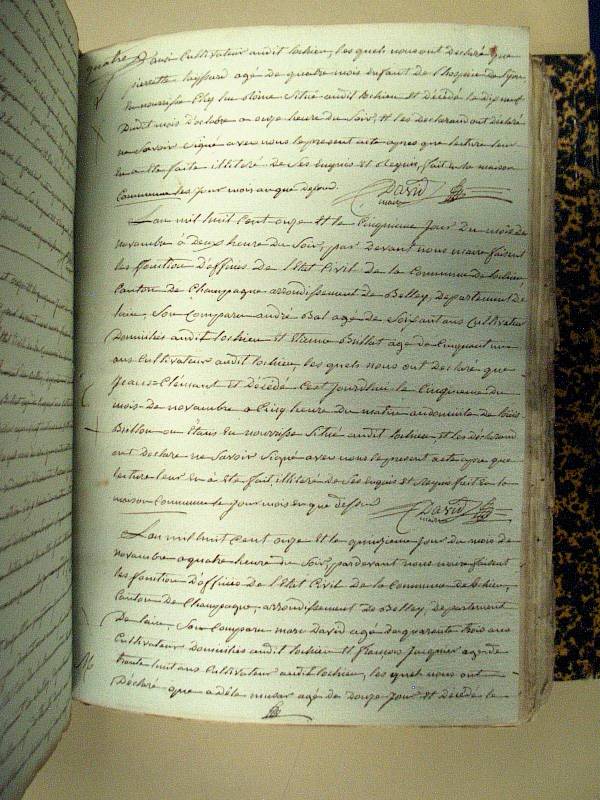 quatre D'ans Cultivateur audit lochieu, les quels nous ont declaré que
pierrette agé de quatre mois enfant de l'hospice de lyon,
en nourrisse Chez situé audit lochieu Et décédé le dix neuf
Dudit mois d'octobre a onze heure du soir, Et les declarand ont déclaré
ne savoir signé avec nous le present acte apres que lecture leur
en a Ete faite illiteré de Ses enquis Et Requis, fait en la maison
Commune les jour mois an que desord. David
maire
Lan mil huit cent onze Et le Cinquieme jour Du mois de
novembre a Deux heure Du Soir, par Devant nous maire faisant
les fonction Doffices De l'Etat Civil De la Commune de lochieu,
Canton De Champagne arrondissement De Belley, departement De
lain, Son Comparu andré Bal agé de Soixant ans Cultivateur
Domiciliés audit lochieu Et Etienne Brillat agé de Cinquant un
ans Cultivateur audit lochieu, les quels nous ont Declare que
Clemant Et Décédé Cest jourdhui le Cinquieme du
mois De novembre a Cinq heure Du matin audomicile De
Brillon ou Etais En nourrisse Situé audit lochieu Et les declarand
ont Declaré ne Savoir Signé avec nous le present acte apres que
lecture leur En à Ete fait, illiteré de Ses enquis Et Requis fait En la
maison Commune le jour mois en que desord David
maire
Lan mil huit cent onze Et le quinzieme jour du mois de
novembre a quatre heure du Soir, pardevant nous maire faisant
les fonction Doffices De l'Etat Civil De la Commune de lochieu,
Canton De Champagne, arrondissement De Belley, departement
De lain, Son Comparu marc David agé de quarante trois ans
Cultivateur Domiciliés audit lochieu Et françois jacquier agé de
trante huit ans Cultivateur audit lochieu, les quels nous ont
Déclaré que adèle agé de Douze jour Et décédé le